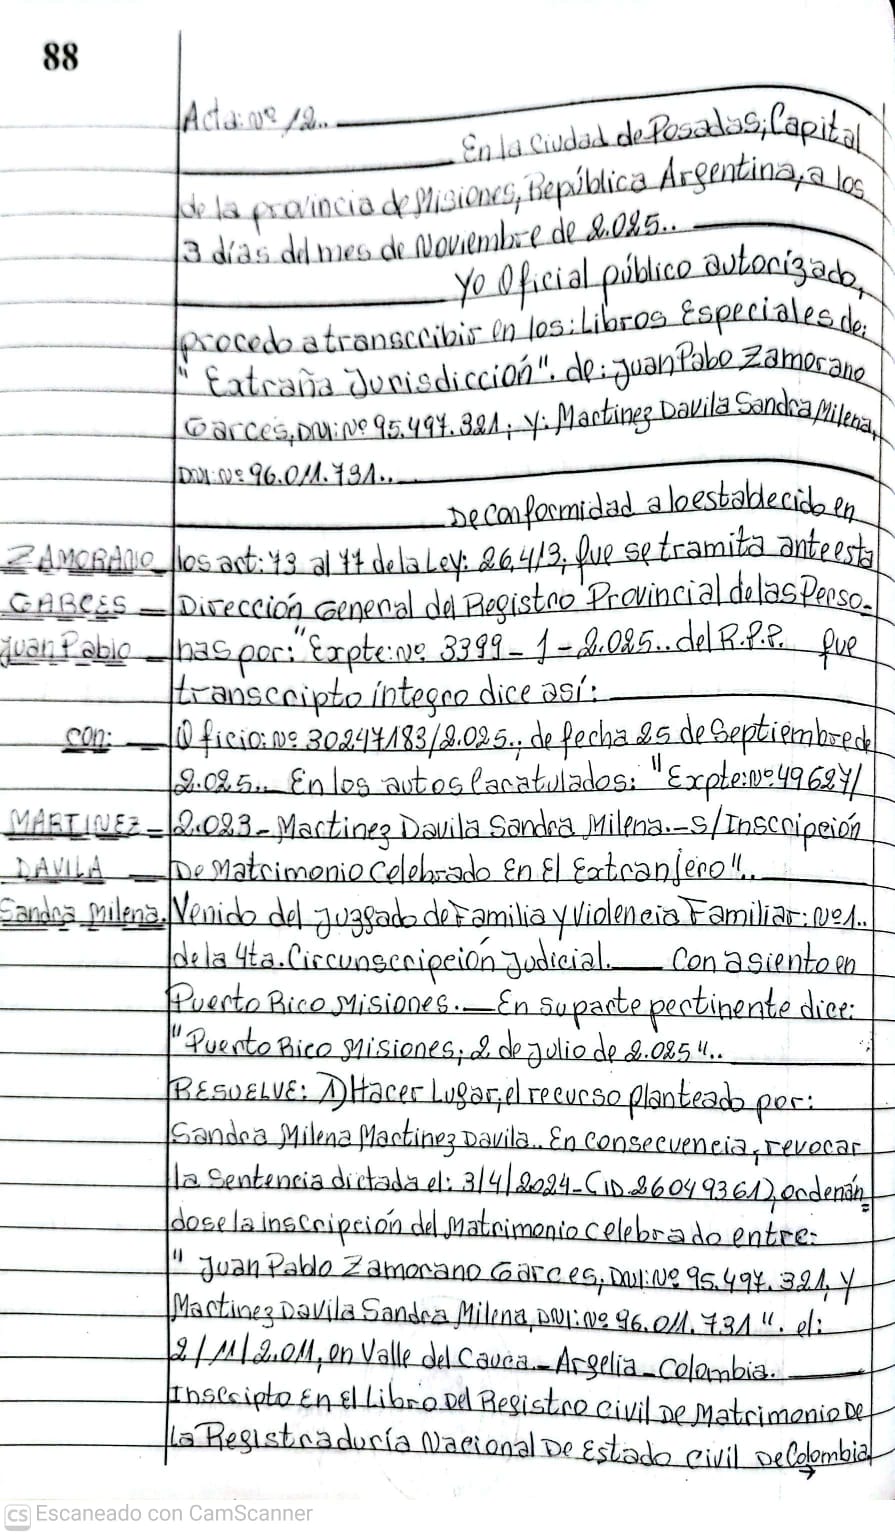 88
Acta: Nº 12..
En la Ciudad de Posadas; Capital
de la provincia de Misiones, República Argentina, a los
3 días del mes de Noviembre de 2.025..
Yo Oficial público autorizado,
procedo a transcribir en los: Libros Especiales de:
" Extraña Jurisdicción". de: Juan Pabo Zamorano
Garces, DNI: Nº 95.497.321; y: Martinez Davila Sandra Milena,
DNI: Nº 96.011.731..
De conformidad a lo establecido en
los art: 73 al 77 de la Ley: 26.413; que se tramita ante esta
Dirección General del Registro Provincial de las Perso-
nas por: "Expte: Nº 3399 - 1 - 2.025.. del R.P.P. que
transcripto íntegro dice así:
Oficio: Nº 30247183/2.025.; de fecha 25 de Septiembre de
2.025.. En los autos Caratulados: "Expte: Nº 49627/
2.023 - Martinez Davila Sandra Milena.- S/Inscripción
De Matrimonio Celebrado En El Extranjero"..
Venido del Juzgado de Familia y Violencia Familiar: Nº1..
de la 4ta. Circunscripción Judicial. Con asiento en
Puerto Rico Misiones. En su parte pertinente dice:
"Puerto Rico Misiones; 2 de Julio de 2.025"..
RESUELVE: 1) Hacer Lugar, el recurso planteado por:
Sandra Milena Martinez Davila.. En consecuencia, revocar
la Sentencia dictada el: 3/4/2024 - (ID. 26049361), ordenán=
dose la inscripción del Matrimonio celebrado entre:
" Juan Pablo Zamorano Garces, DNI: Nº 95.497.321, y
Martinez Davila Sandra Milena, DNI: Nº 96.011.731". el:
2/11/2.011, en Valle del Cauca - Argelia - Colombia.
Inscripto En El Libro Del Registro Civil De Matrimonio De
La Registraduría Nacional De Estado Civil De Colombia
→
ZAMORANO
GARCES
Juan Pablo
con:
MARTINEZ
DAVILA
Sandra Milena.
CS Escaneado con CamScanner